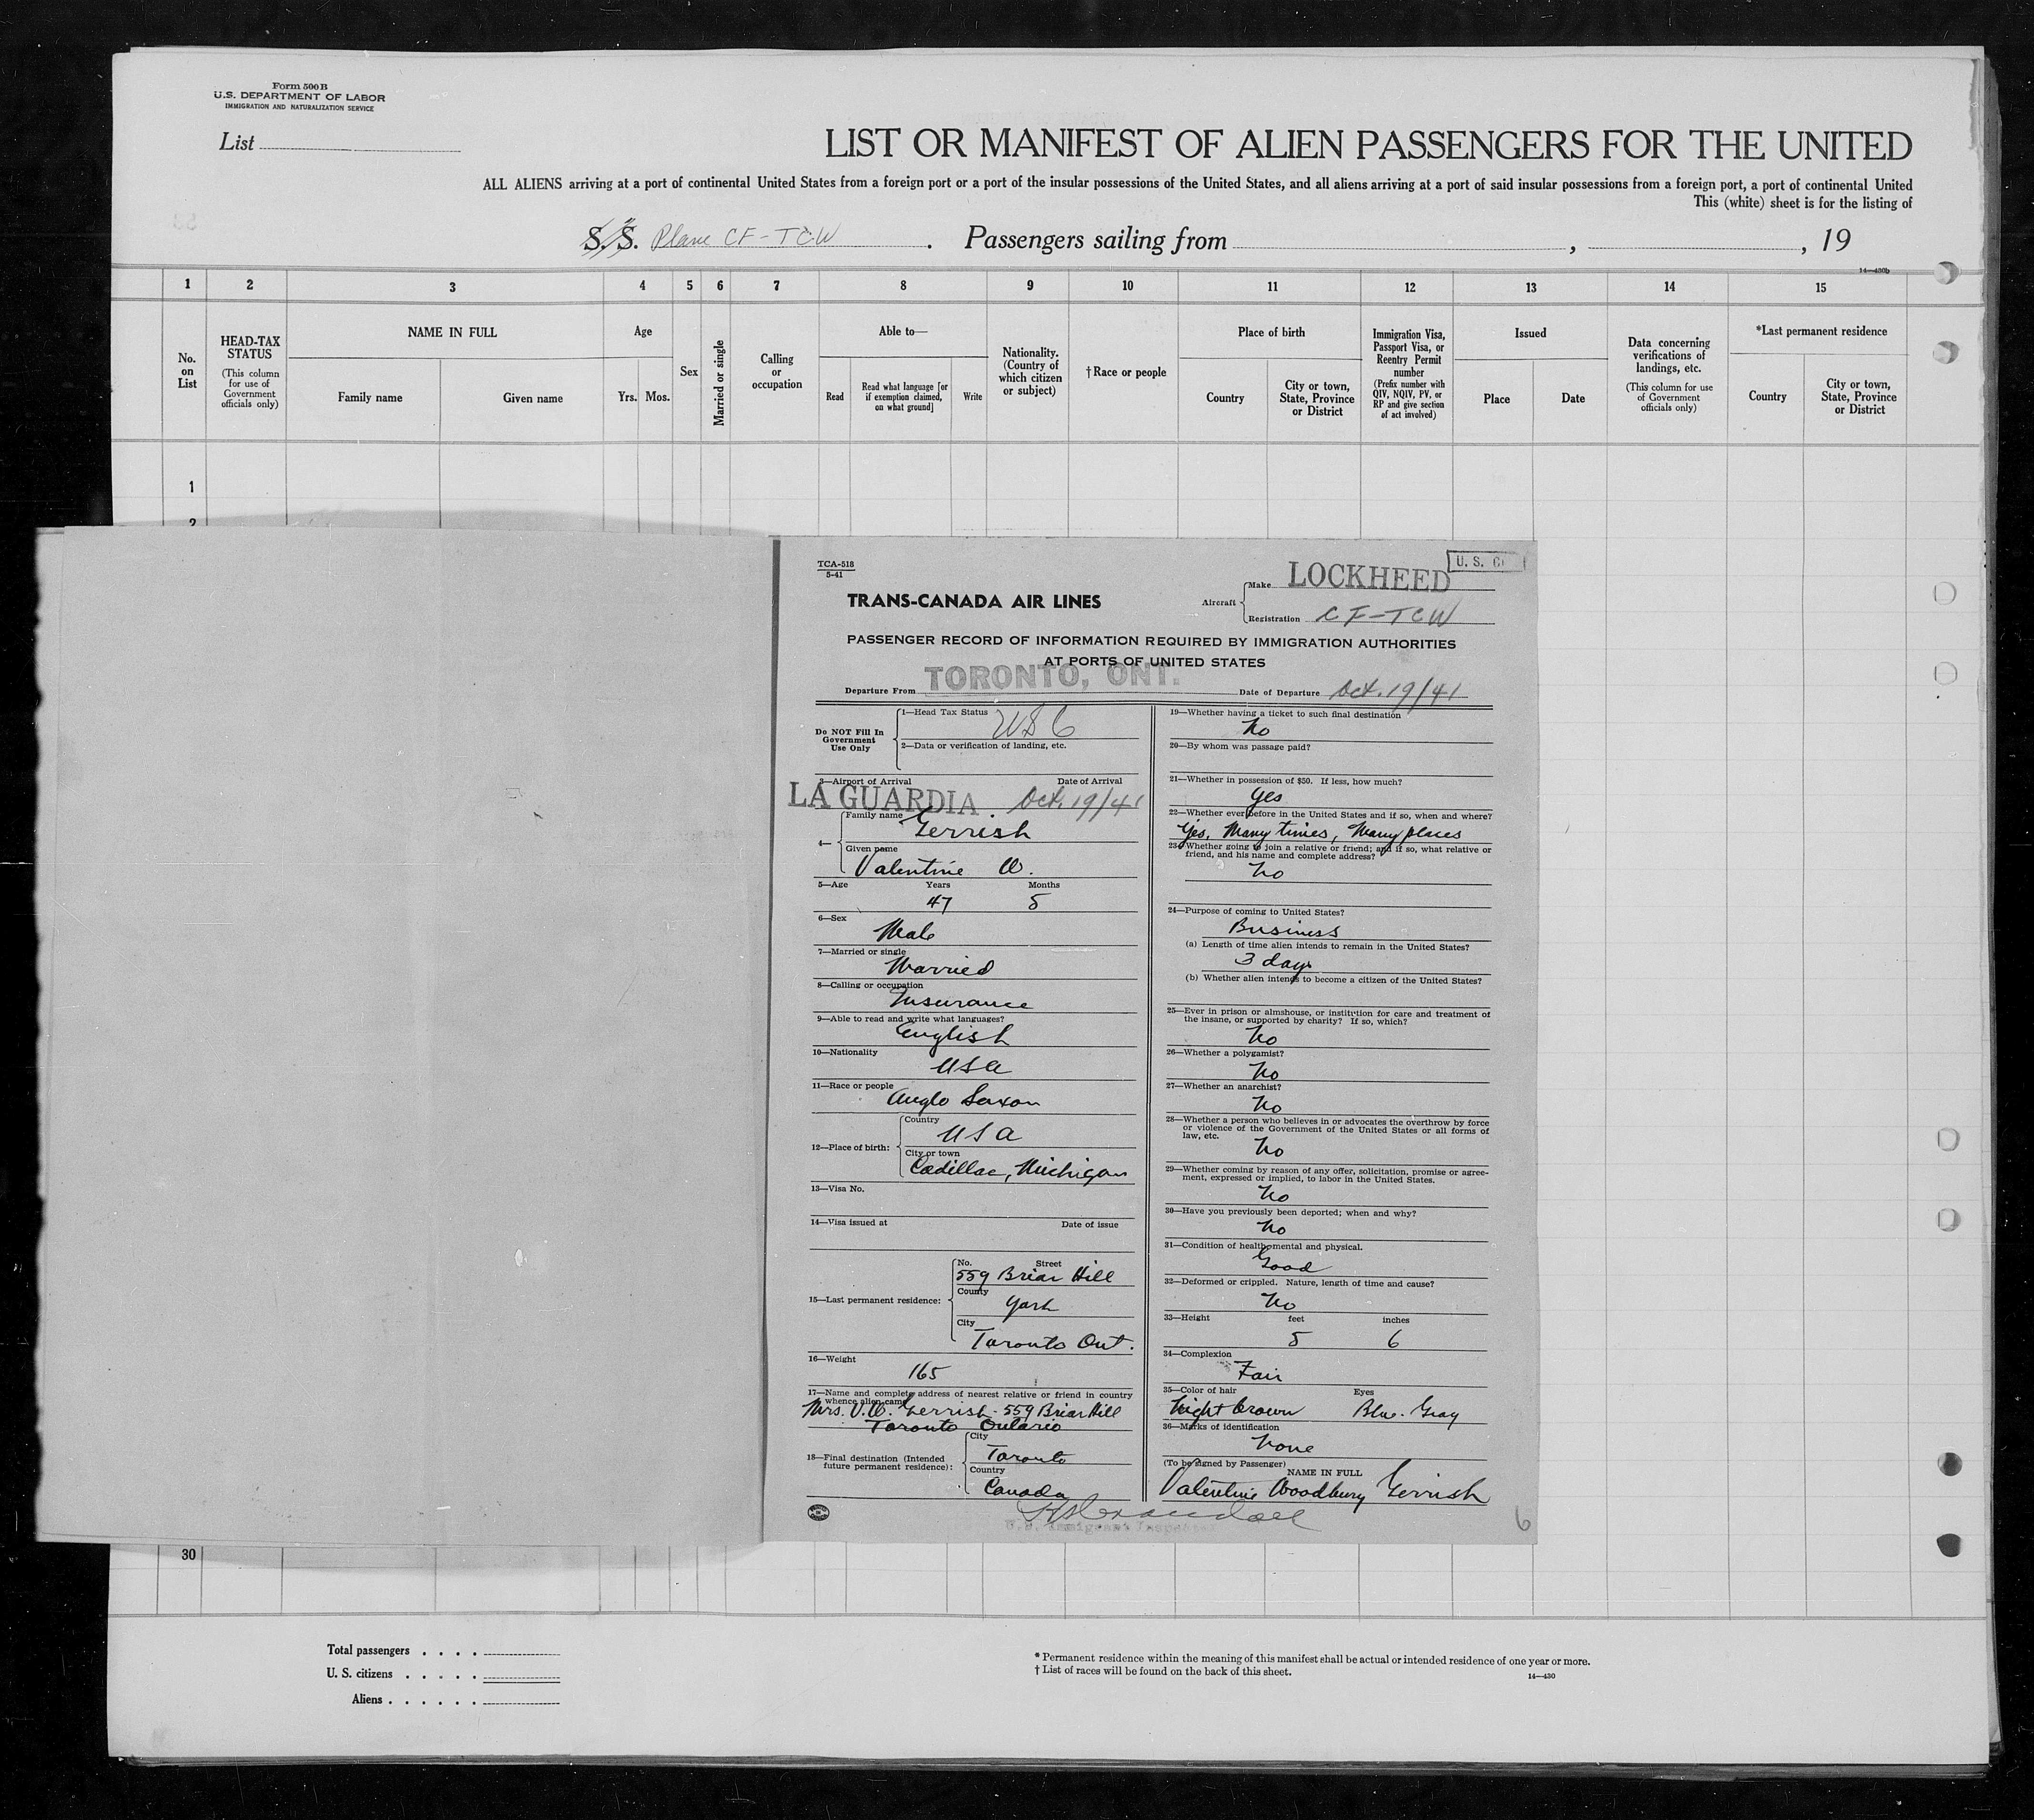 Form 500B
U.S. DEPARTMENT OF LABOR
IMMIGRATION AND NATURALIZATION SERVICE
List
LIST OR MANIFEST OF ALIEN PASSENGERS FOR THE UNITED
ALL ALIENS arriving at a port of continental United States from a foreign port or a port of the insular possessions of the United States, and all aliens arriving at a port of said insular possessions from a foreign port, a port of continental United
This (white) sheet is for the listing of
S.S. Plane CF-TCW. Passengers sailing from , , 19
14—430b
1 2 3 4 5 6 7 8 9 10 11 12 13 14 15
No. on List
HEAD-TAX STATUS
(This column for use of Government officials only)
NAME IN FULL
Family name Given name
Age
Yrs. Mos.
Sex
Married or single
Calling or occupation
Able to—
Read
Read what language [or if exemption claimed, on what ground]
Write
Nationality. (Country of which citizen or subject)
†Race or people
Place of birth
Country
City or town, State, Province or District
Immigration Visa, Passport Visa, or Reentry Permit number
(Prefix number with QIV, NQIV, PV, or RP and give section of act involved)
Issued
Place Date
Data concerning verifications of landings, etc.
(This column for use of Government officials only)
*Last permanent residence
Country
City or town, State, Province or District
1
2
TCA-518
5-41
TRANS-CANADA AIR LINES
Aircraft
Make LOCKHEED
U. S.
Registration CF-TCW
PASSENGER RECORD OF INFORMATION REQUIRED BY IMMIGRATION AUTHORITIES
AT PORTS OF UNITED STATES
Departure From TORONTO, ONT. Date of Departure Oct. 19/41
Do NOT Fill In Government Use Only
1—Head Tax Status USC
2—Data or verification of landing, etc.
3—Airport of Arrival Date of Arrival
LA GUARDIA Oct. 19/41
4—
Family name Gerrish
Given name
Valentine W.
5—Age Years Months
47 5
6—Sex
Male
7—Married or single
Married
8—Calling or occupation
Insurance
9—Able to read and write what languages?
English
10—Nationality
USA
11—Race or people
Anglo Saxon
12—Place of birth:
Country
USA
City or town
Cadillac, Michigan
13—Visa No.
14—Visa issued at Date of issue
15—Last permanent residence:
No. Street
559 Briar Hill
County
York
City
Toronto Ont.
16—Weight
165
17—Name and complete address of nearest relative or friend in country
whence alien came
Mrs. V.W. Gerrish - 559 Briar Hill
Toronto Ontario
18—Final destination (Intended future permanent residence):
City
Toronto
Country
Canada
19—Whether having a ticket to such final destination
No
20—By whom was passage paid?
21—Whether in possession of $50. If less, how much?
Yes
22—Whether ever before in the United States and if so, when and where?
Yes, Many times, Many places
23—Whether going to join a relative or friend; and if so, what relative or
friend, and his name and complete address?
No
24—Purpose of coming to United States?
Business
(a) Length of time alien intends to remain in the United States?
3 days
(b) Whether alien intends to become a citizen of the United States?
25—Ever in prison or almshouse, or institution for care and treatment of
the insane, or supported by charity? If so, which?
No
26—Whether a polygamist?
No
27—Whether an anarchist?
No
28—Whether a person who believes in or advocates the overthrow by force
or violence of the Government of the United States or all forms of
law, etc.
No
29—Whether coming by reason of any offer, solicitation, promise or agree-
ment, expressed or implied, to labor in the United States.
No
30—Have you previously been deported; when and why?
No
31—Condition of health, mental and physical.
Good
32—Deformed or crippled. Nature, length of time and cause?
No
33—Height feet inches
5 6
34—Complexion
Fair
35—Color of hair Eyes
Light brown Blue-Gray
36—Marks of identification
None
(To be signed by Passenger)
NAME IN FULL
Valentine Woodbury Gerrish
U.S. Immigrant Inspector
6
30
Total passengers . . . .
U. S. citizens . . . . .
Aliens . . . . . .
* Permanent residence within the meaning of this manifest shall be actual or intended residence of one year or more.
† List of races will be found on the back of this sheet.
14—430